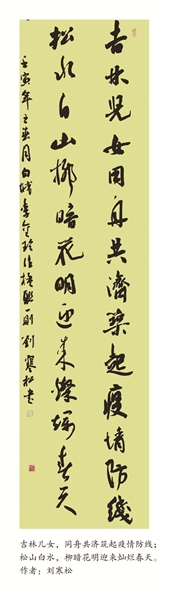 吉林兒女同舟共濟築起疫情防线
松水白山柳暗花明迎来燦爛春天
壬寅年之英月白城李金玲作楹联一副劉寒松書
吉林儿女，同舟共济筑起疫情防线；
松山白水，柳暗花明迎来灿烂春天。
作者：刘寒松